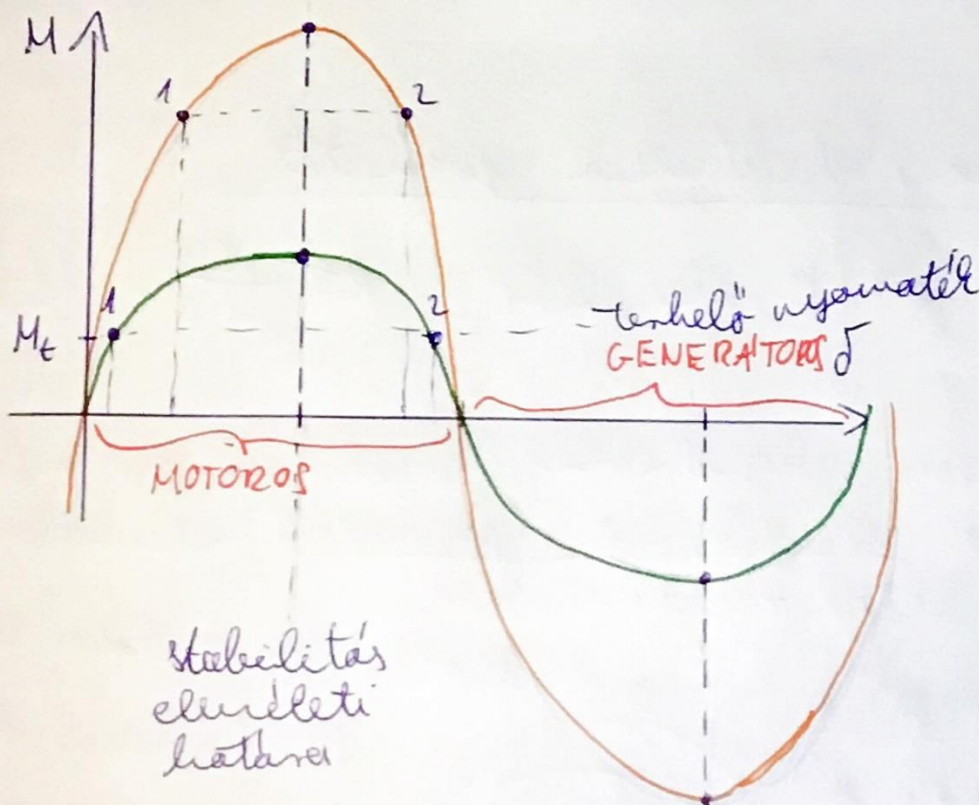 M
1
2
1
2
M_t
terhelő nyomaték
GENERÁTOROS
δ
MOTOROS
stabilitás
elméleti
határa